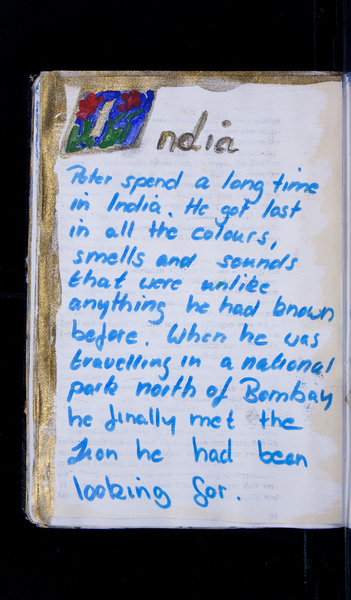 India
Peter spend a long time
in India. He got lost
in all the colours,
smells and sounds
that were unlike
anything he had known
before. When he was
travelling in a national
park north of Bombay
he finally met the
Lion he had been
looking for.